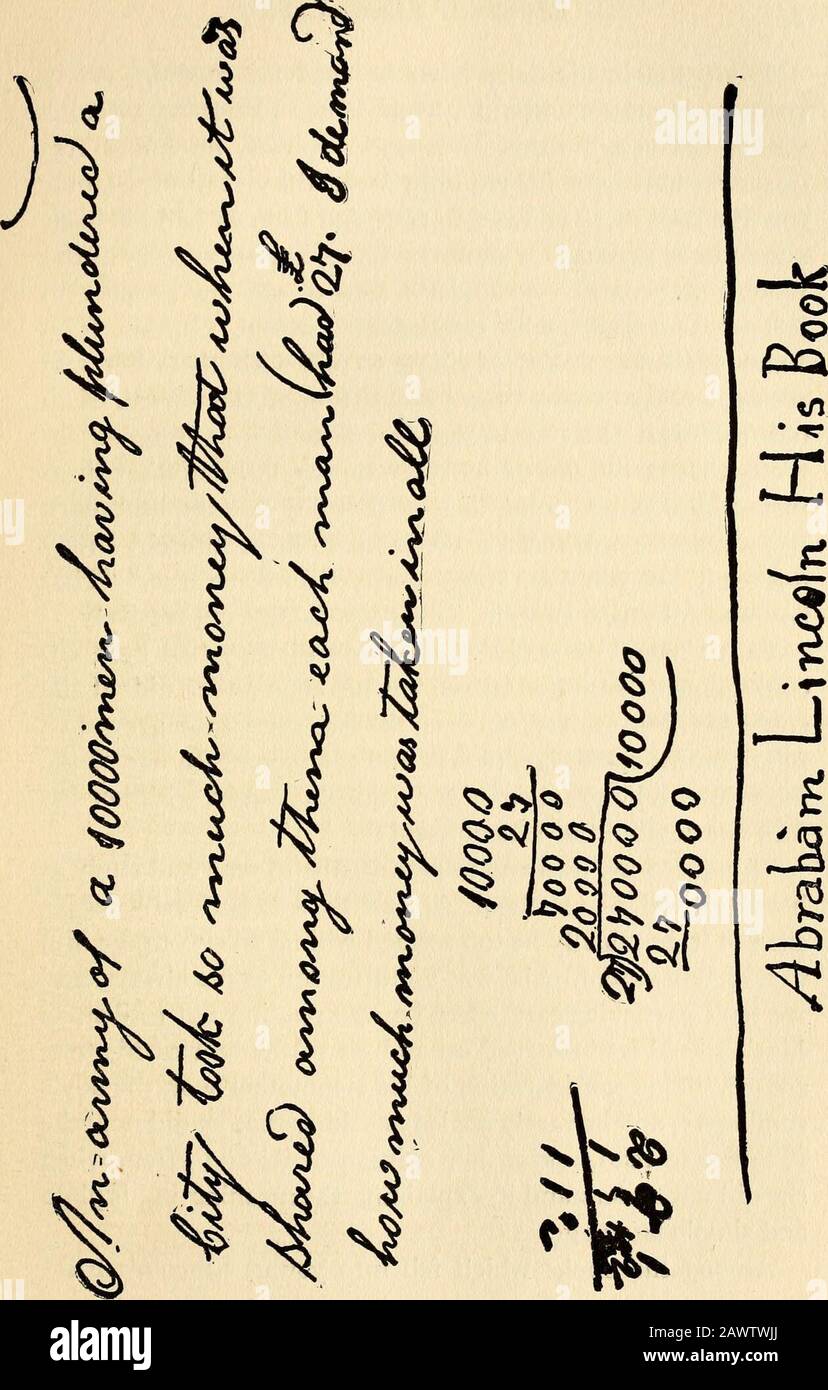 An army of a 10000 men having plundered a
City took so much money that when it was
shared among them each man had £ 27. I demand
how much money was taken in all
10000
27
70000
20000
27)270000(10000
27
0000
Abraham Lincoln His Book
alamy
Image ID: 2AWTWJJ
www.alamy.com